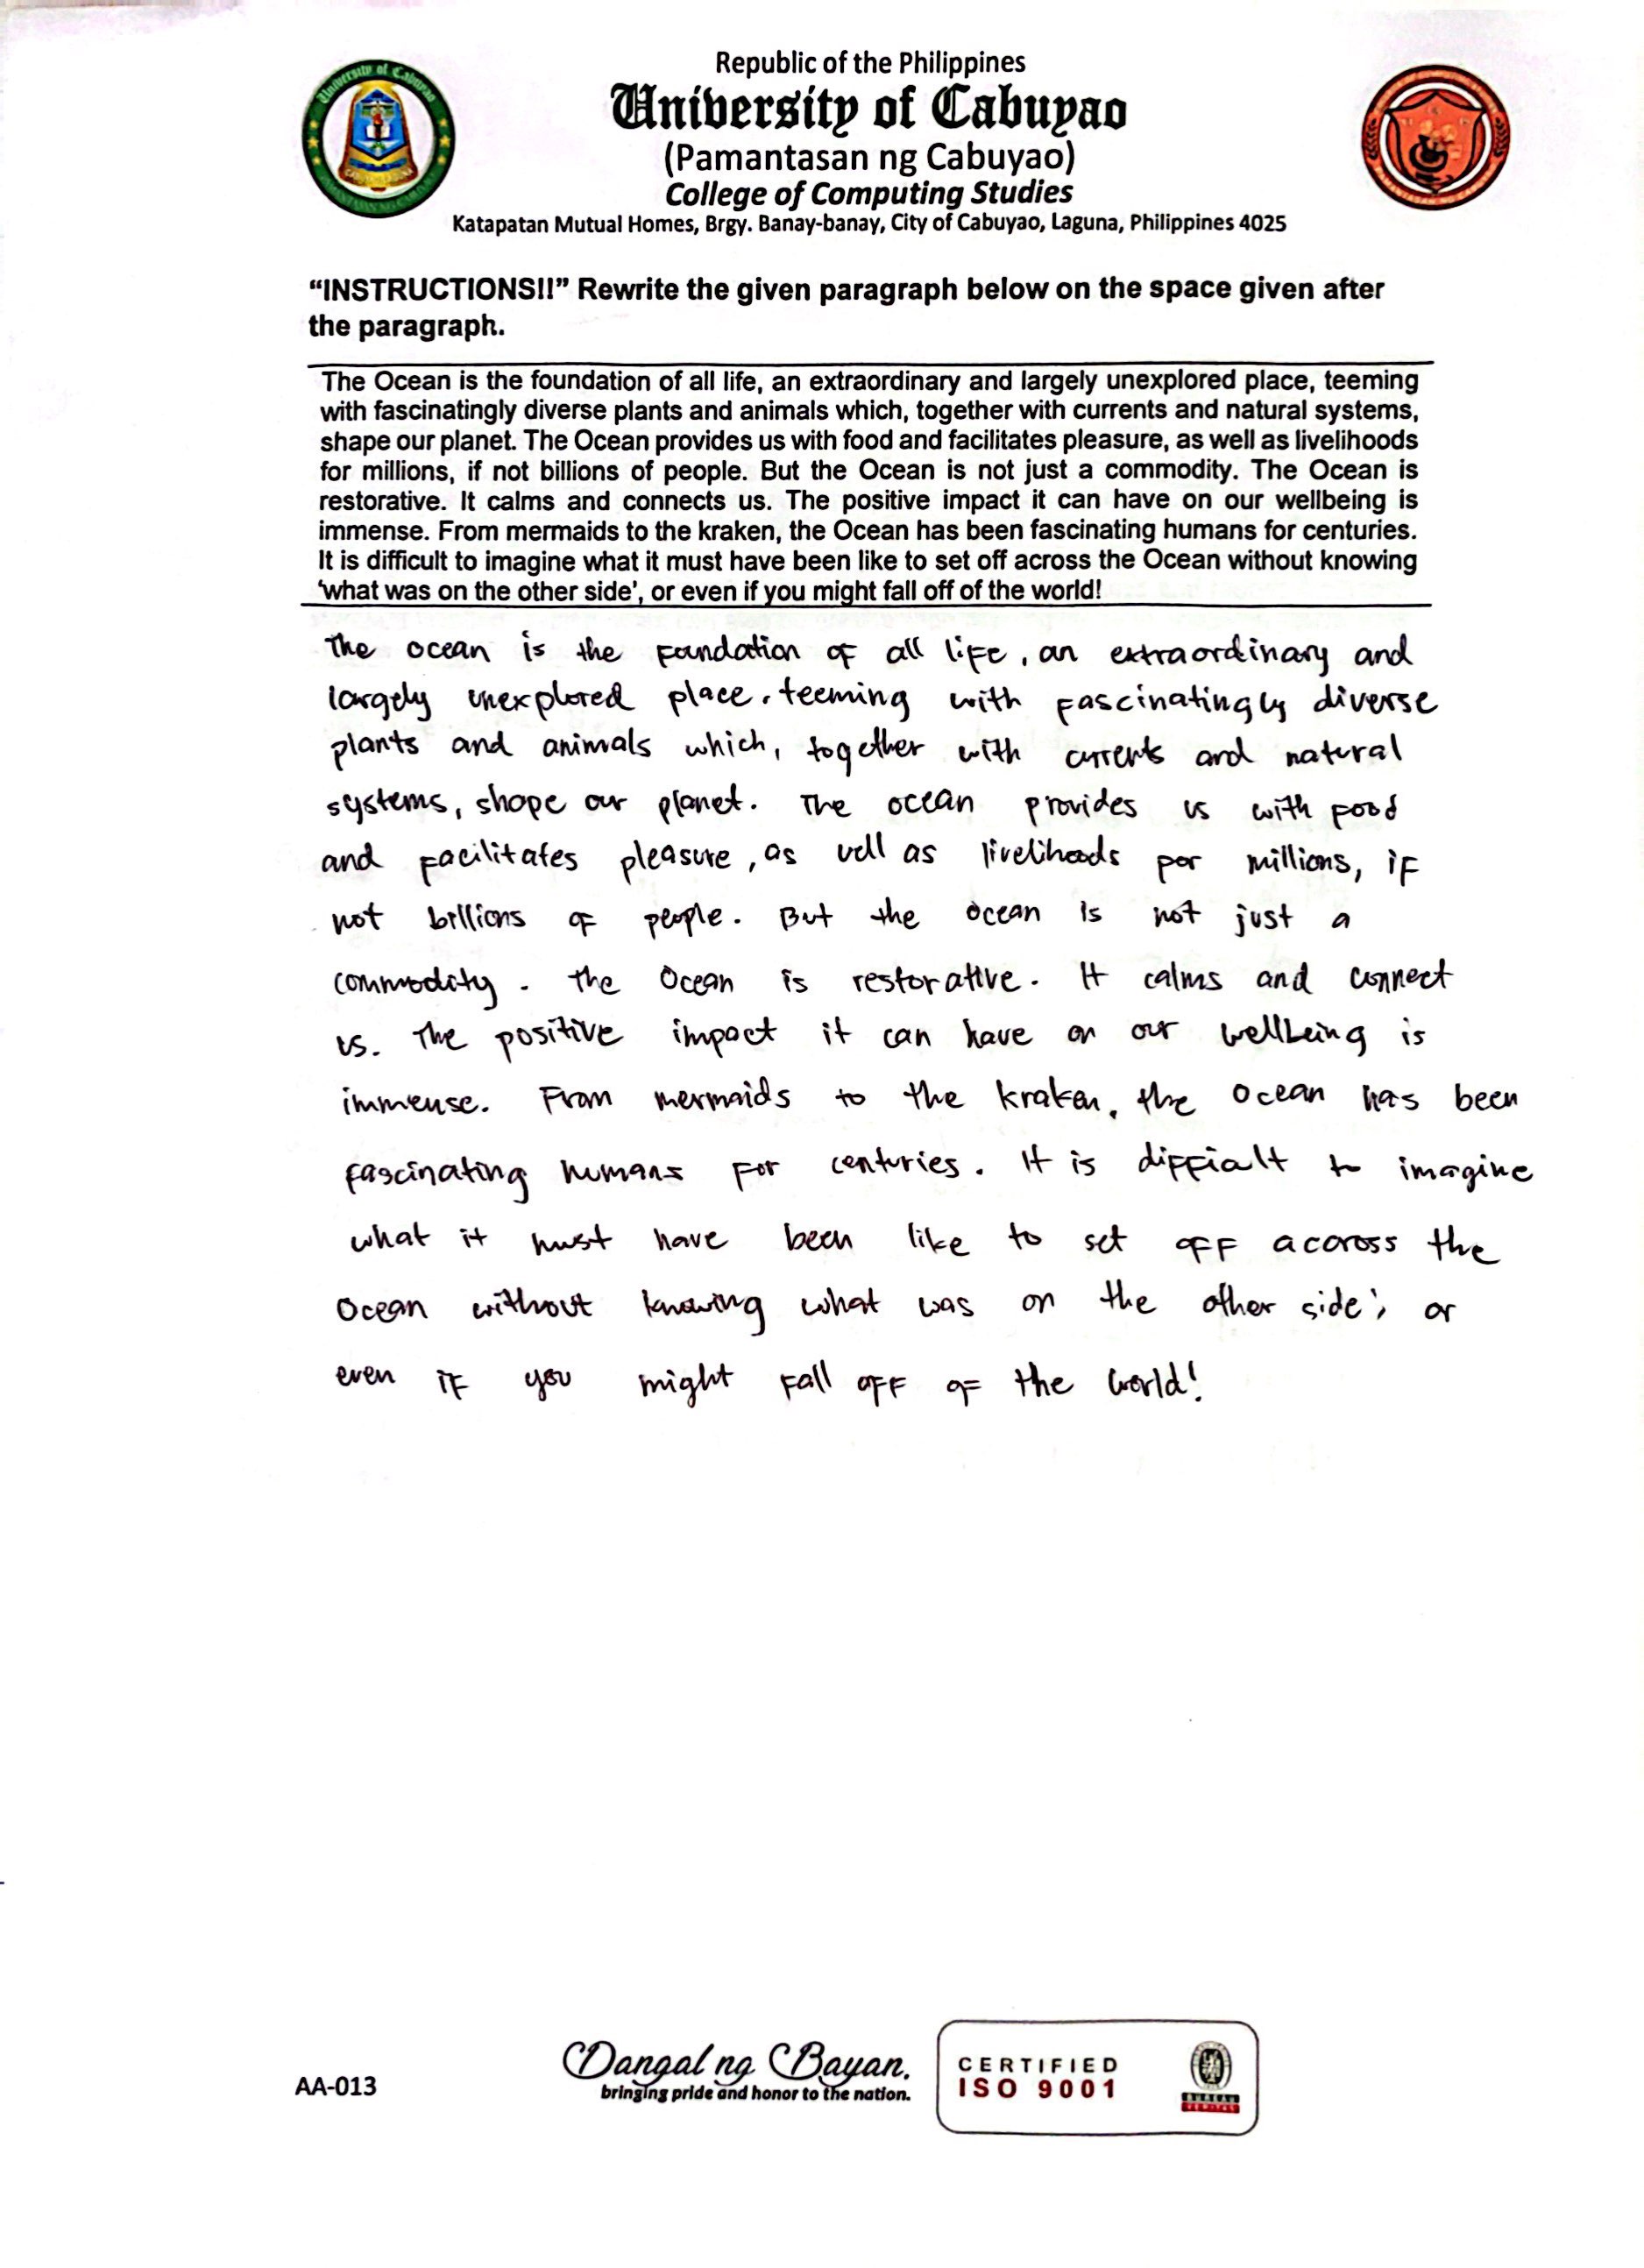 Republic of the Philippines
University of Cabuyao
(Pamantasan ng Cabuyao)
College of Computing Studies
Katapatan Mutual Homes, Brgy. Banay-banay, City of Cabuyao, Laguna, Philippines 4025
“INSTRUCTIONS!!” Rewrite the given paragraph below on the space given after
the paragraph.
The Ocean is the foundation of all life, an extraordinary and largely unexplored place, teeming
with fascinatingly diverse plants and animals which, together with currents and natural systems,
shape our planet. The Ocean provides us with food and facilitates pleasure, as well as livelihoods
for millions, if not billions of people. But the Ocean is not just a commodity. The Ocean is
restorative. It calms and connects us. The positive impact it can have on our wellbeing is
immense. From mermaids to the kraken, the Ocean has been fascinating humans for centuries.
It is difficult to imagine what it must have been like to set off across the Ocean without knowing
‘what was on the other side’, or even if you might fall off of the world!
The ocean is the foundation of all life, an extraordinary and
largely unexplored place, teeming with fascinatingly diverse
plants and animals which, together with currents and natural
systems, shape our planet. The ocean provides us with food
and facilitates pleasure, as well as livelihoods for millions, if
not billions of people. But the ocean is not just a
commodity. The Ocean is restorative. It calms and connect
us. The positive impact it can have on our wellbeing is
immense. From mermaids to the kraken, the Ocean has been
fascinating humans for centuries. It is difficult to imagine
what it must have been like to set off acoross the
Ocean without knowing what was on the other side', or
even if you might fall off of the world!
AA-013
Dangal ng Bayan.
bringing pride and honor to the nation.
CERTIFIED
ISO 9001
BUREAU
VERITAS